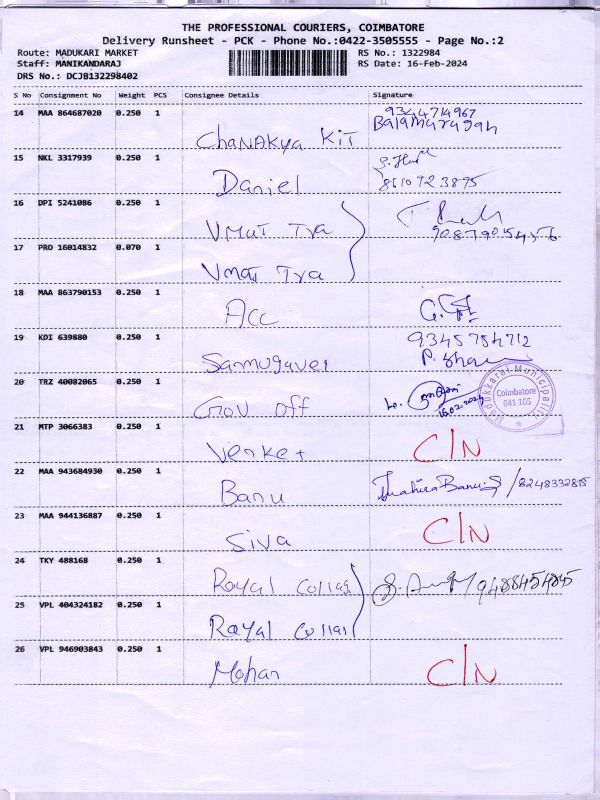 THE PROFESSIONAL COURIERS, COIMBATORE
Delivery Runsheet - PCK - Phone No.:0422-3505555 - Page No.:2
Route: MADUKARI MARKET RS No.: 1322984
Staff: MANIKANDARAJ RS Date: 16-Feb-2024
DRS No.: DCJB132298402
S No Consignment No Weight PCS Consignee Details Signature
14 MAA 864687020 0.250 1 Chanakya Kit
Balamurugan
15 NKL 3317939 0.250 1 Daniel
8610923895
16 DPI 5241086 0.250 1 Vmat Tra
17 PRO 16014832 0.070 1 Vmat Tra
18 MAA 863790153 0.250 1 Acc
19 KDI 639880 0.250 1 Sanmugavel
9345754712
20 TRZ 40082065 0.250 1 Gov off
16.02.2024
Madukkarai Municipality
Coimbatore
641 105
21 MTP 3066383 0.250 1 Venket C/N
22 MAA 943684930 0.250 1 Banu /8248332815
23 MAA 944136887 0.250 1 Siva C/N
24 TKY 488168 0.250 1 Royal Collag
25 VPL 404324182 0.250 1 Royal Collag
26 VPL 946903843 0.250 1 Mohan C/N